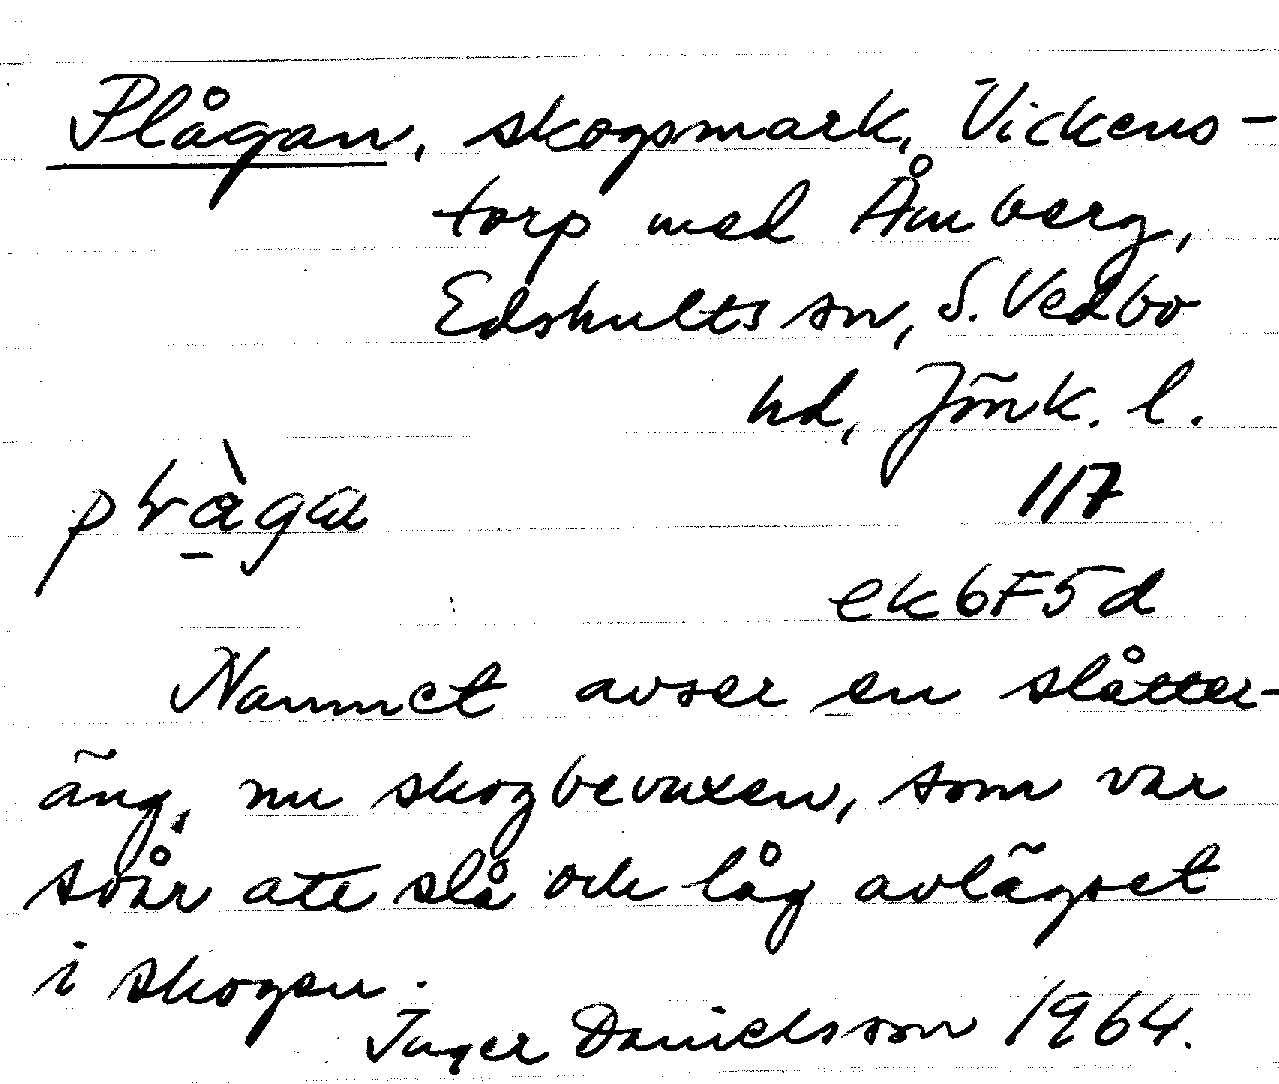 Plågan, skogsmark, Vickens-
torp med Åmberg,
Edshults sn, S. Vedbo
hd, Jönk. l.
117
ek6F5d
Namnet avser en slåtter-
äng, nu skogbevuxen, som var
svår att slå och låg avlägset
i skogen.
Inger Danielsson 1964.